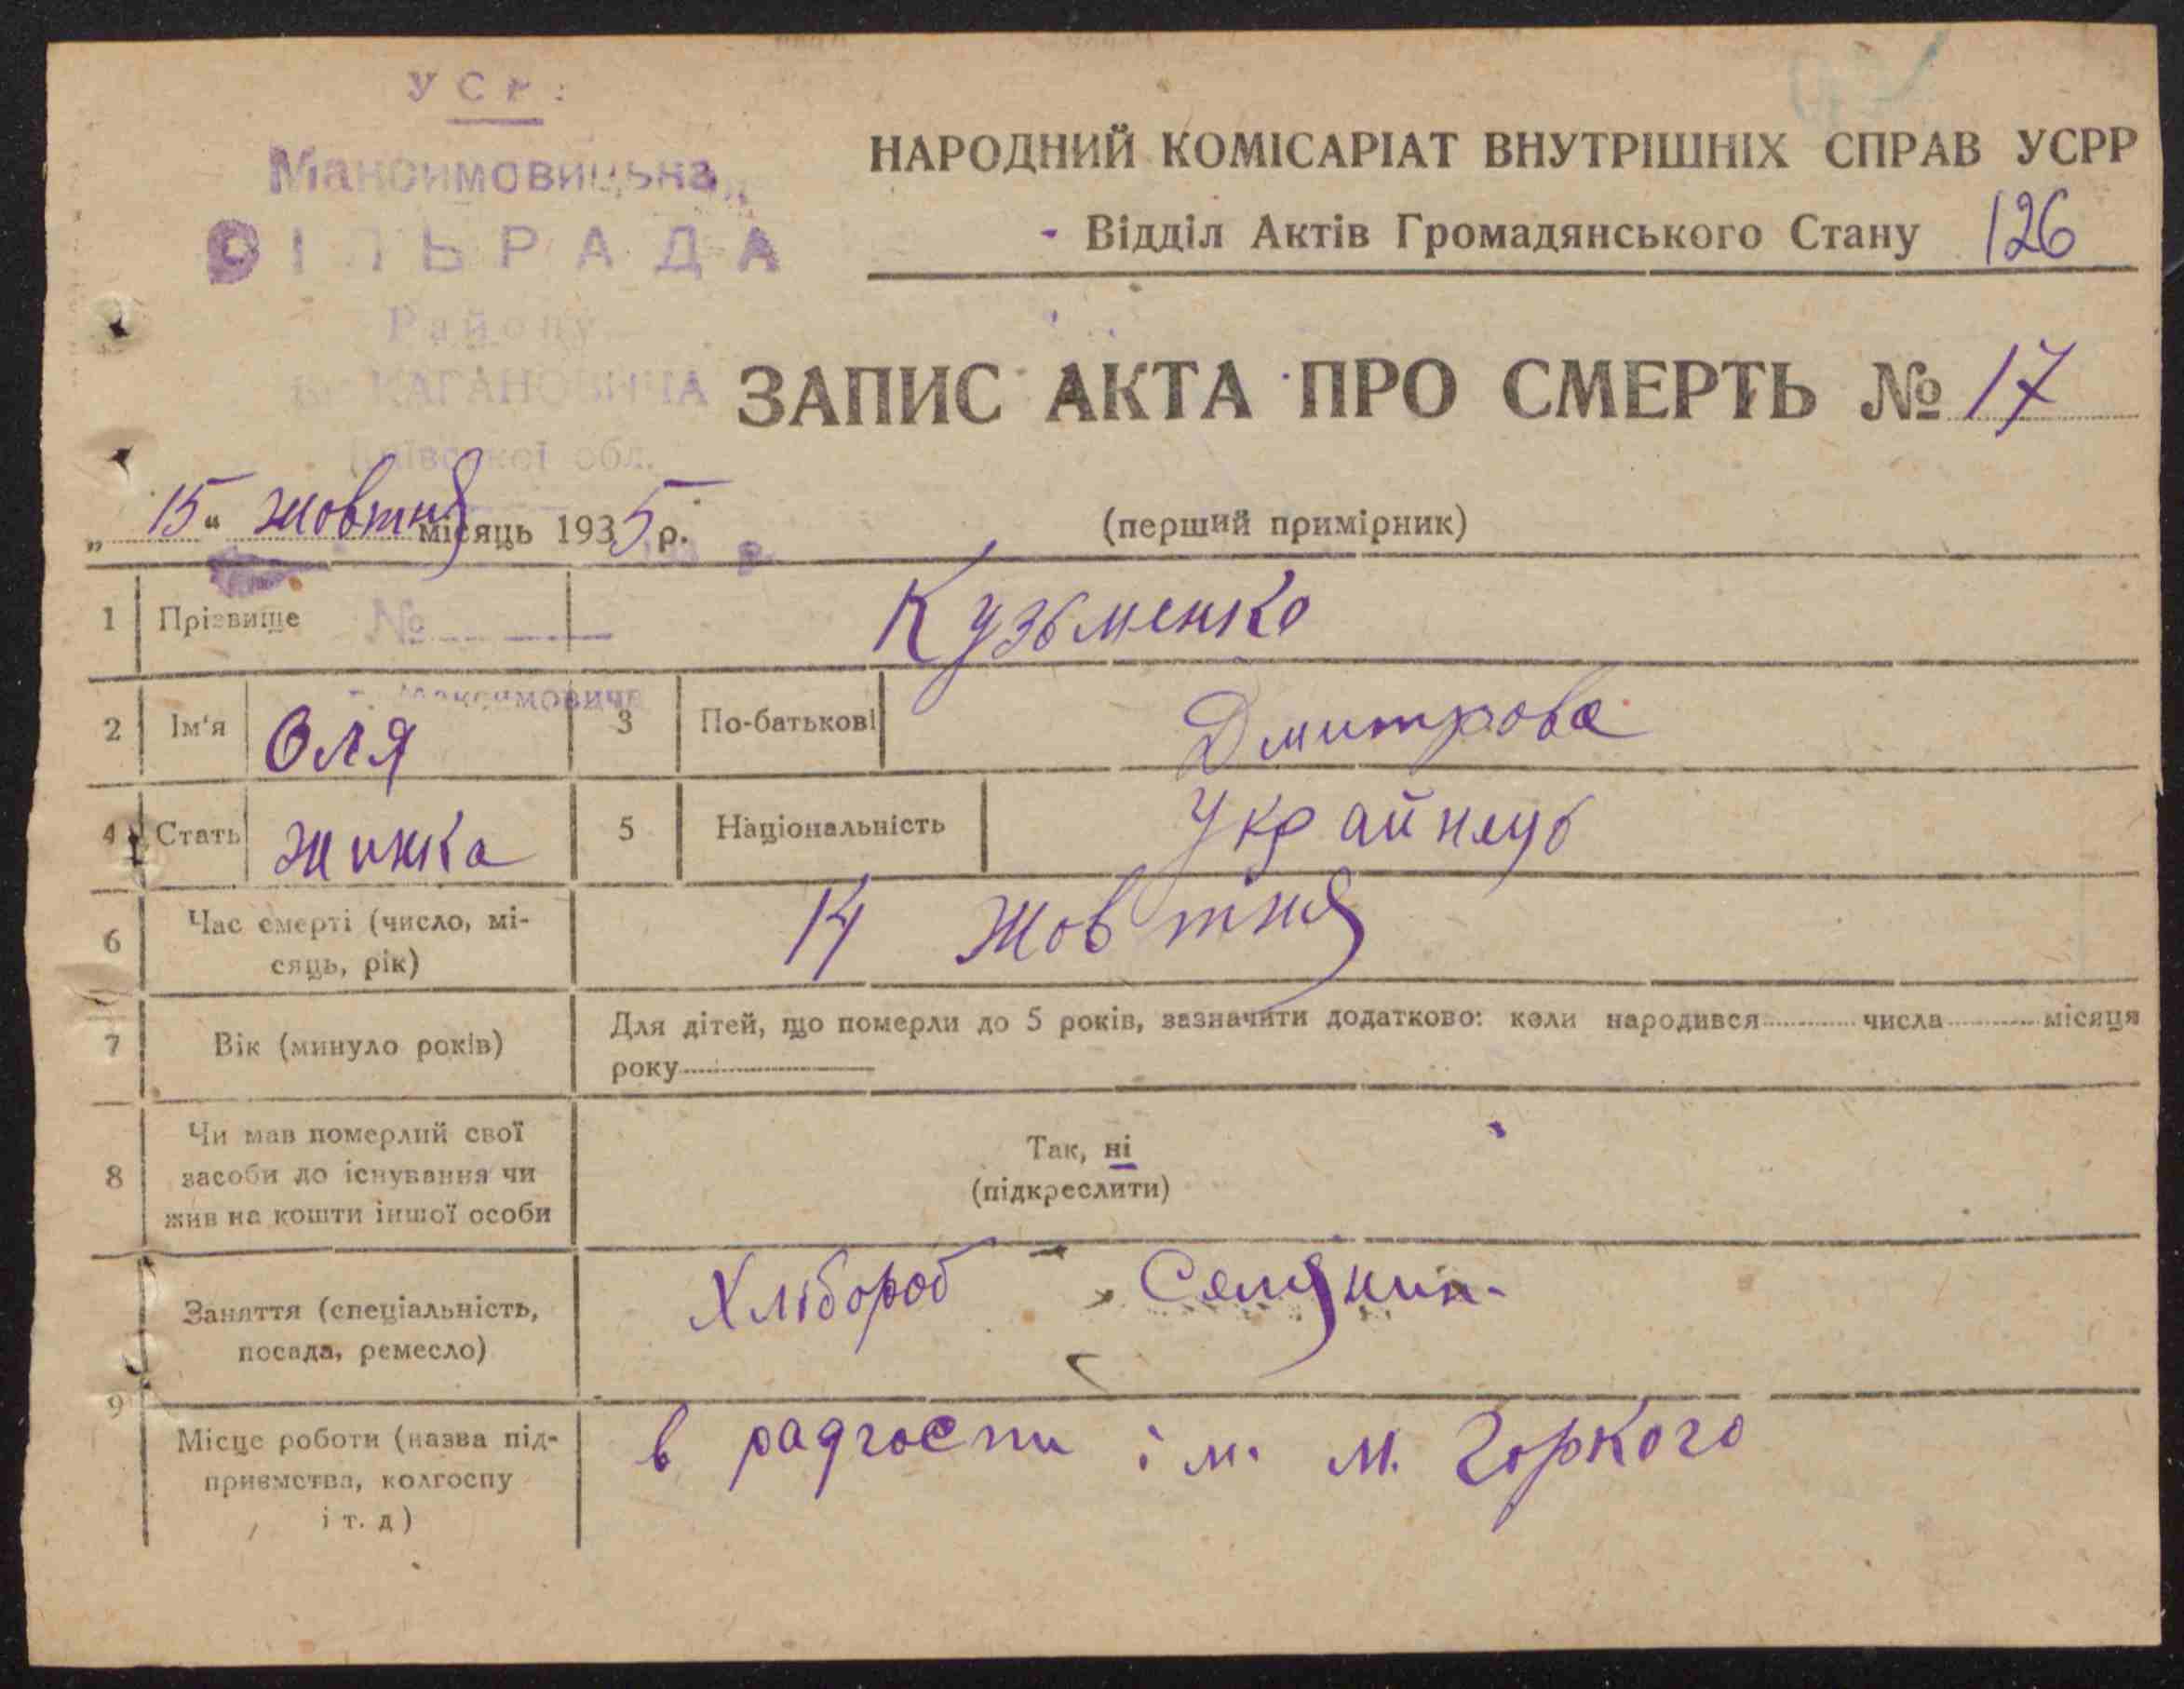 УСР
Максимовицька
СІЛЬРАДА
Району
КАГАНОВИЧА
Київської обл.
НАРОДНИЙ КОМІСАРІАТ ВНУТРІШНІХ СПРАВ УСРР
Відділ Актів Громадянського Стану 126
ЗАПИС АКТА ПРО СМЕРТЬ № 17
„15“ жовтня місяць 1935 р.
(перший примірник)
1 Прізвище Кузьменко
№
2 Ім'я Оля 3 По-батькові Дмитрова
4 Стать жинка 5 Національність
6 Час смерті (число, мі-
сяць, рік) 14 жовтня
7 Вік (минуло років) Для дітей, що померли до 5 років, зазначити додатково: коли народився числа місяця
року
8 Чи мав померлий свої
засоби до існування чи
жив на кошти іншої особи
Так, ні
(підкреслити)
9 Заняття (спеціальність,
посада, ремесло) Хлібороб
Місце роботи (назва під-
приємства, колгоспу
і т. д)
в радгоспи ім. М. Горкого